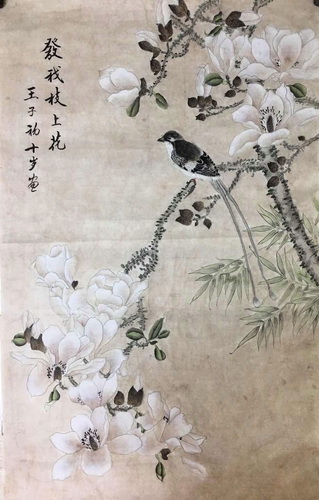 發我枝上花
王子初十岁畫